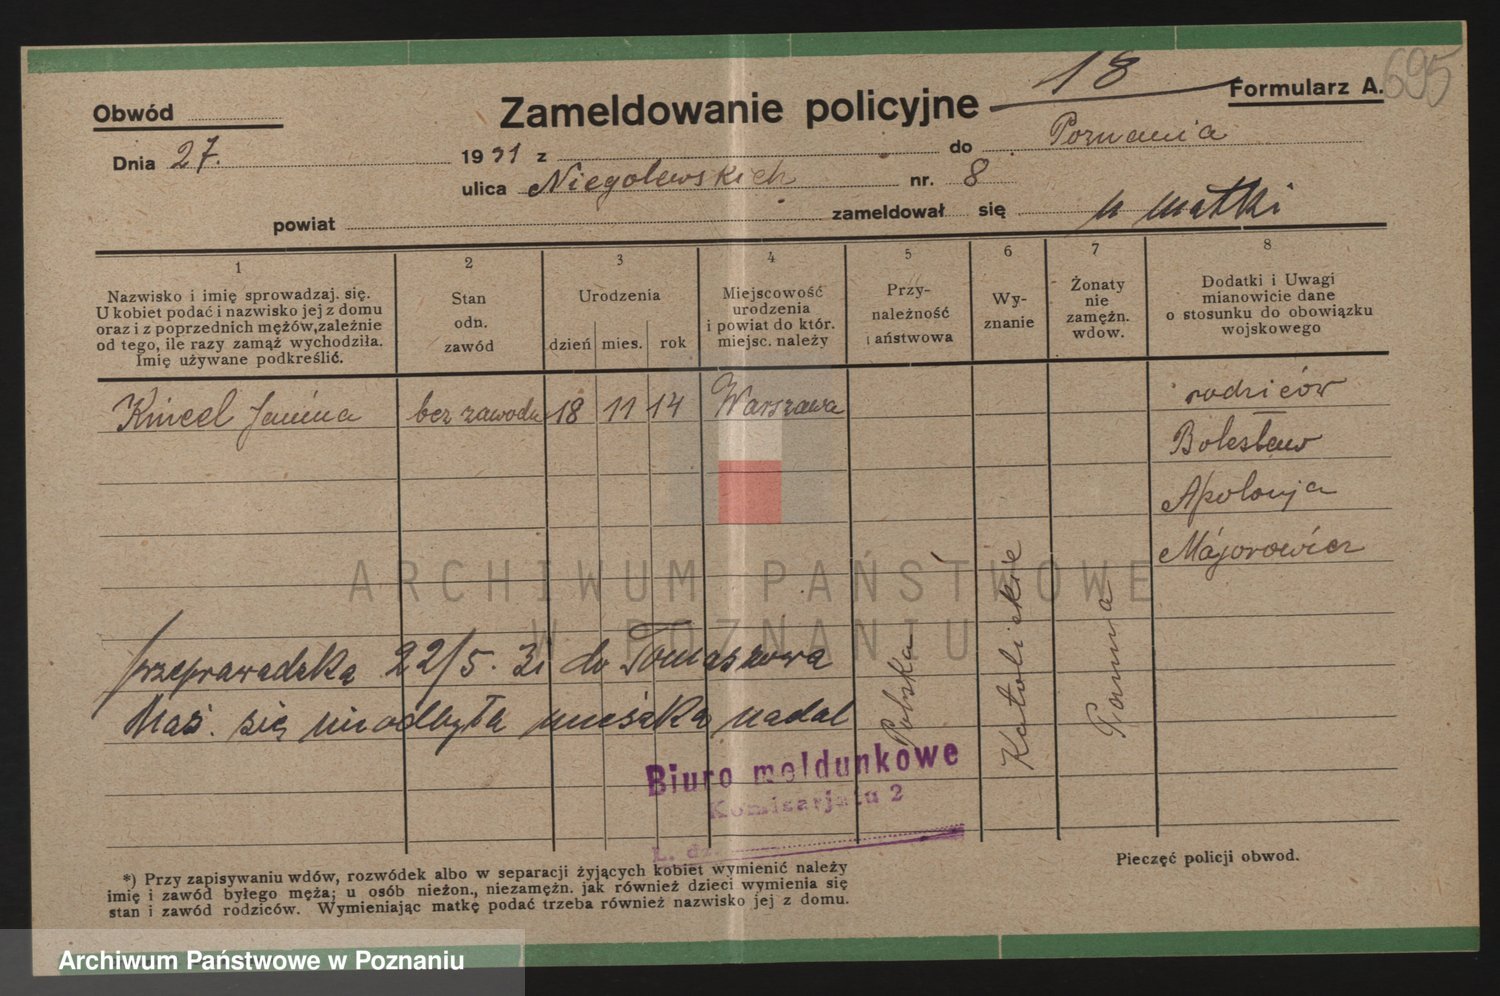 18
695
Obwód
Zameldowanie policyjne
Formularz A.
Dnia 27. 1931 z do Poznania
ulica Niegolewskich nr. 8
powiat zameldował się u matki
1 2 3 4 5 6 7 8
Nazwisko i imię sprowadzaj. się.
U kobiet podać i nazwisko jej z domu
oraz i z poprzednich mężów, zależnie
od tego, ile razy zamąż wychodziła.
Imię używane podkreślić.
Stan
odn.
zawód
Urodzenia
dzień mies. rok
Miejscowość
urodzenia
i powiat do któr.
miejsc. należy
Przy-
należność
i aństwowa
Wy-
znanie
Żonaty
nie
zamężn.
wdow.
Dodatki i Uwagi
mianowicie dane
o stosunku do obowiązku
wojskowego
Janina bez zawodu 18 11 14 Warszawa
Polska
Katolickie
Panna
rodziców
Bolesław
Apolonja
Majorowicz
przeprowadzka 22/5. 31 do Tomaszowa
się nie odbyła mieszka nadal
Biuro meldunkowe
Komisarjatu 2
L. dz.
*) Przy zapisywaniu wdów, rozwódek albo w separacji żyjących kobiet wymienić należy
imię i zawód byłego męża; u osób nieżon., niezamężn. jak również dzieci wymienia się
stan i zawód rodziców. Wymieniając matkę podać trzeba również nazwisko jej z domu.
Pieczęć policji obwod.
ARCHIWUM PAŃSTWOWE
W POZNANIU
Archiwum Państwowe w Poznaniu